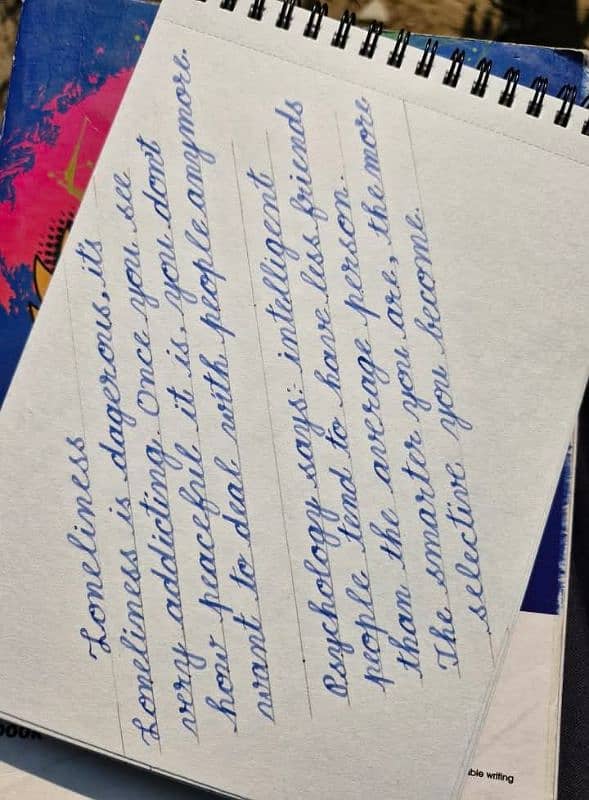 Loneliness
Loneliness is dagerous, it's
very addicting. Once you see
how peaceful it is, you don't
want to deal with people anymore.
Psychology says: intelligent
people tend to have less friends
than the average person.
The smarter you are, the more
selective you become.
ble writing